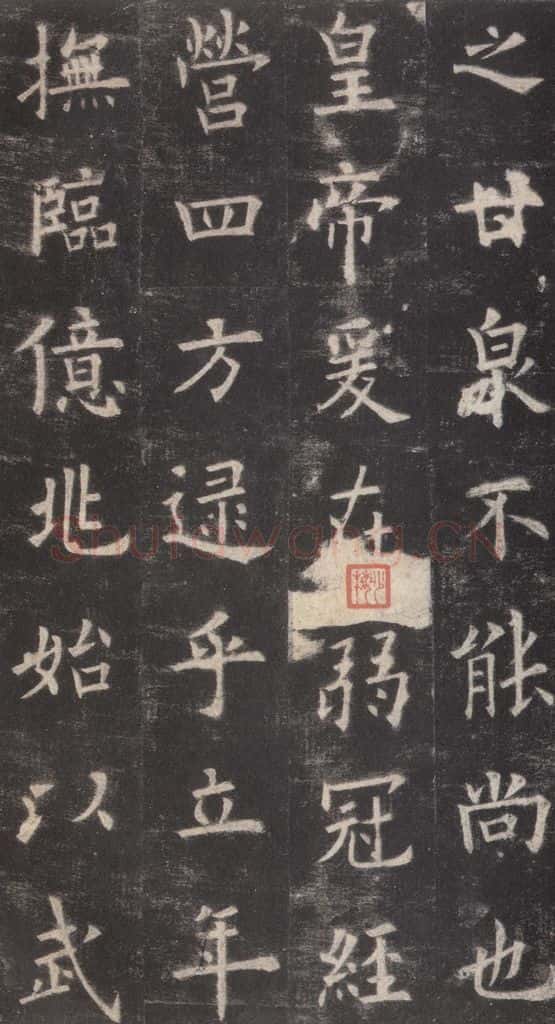 之甘泉不能尚也
皇帝爰在弱冠經
營四方逯乎立年
撫臨億兆始以武
Shufawang.CN